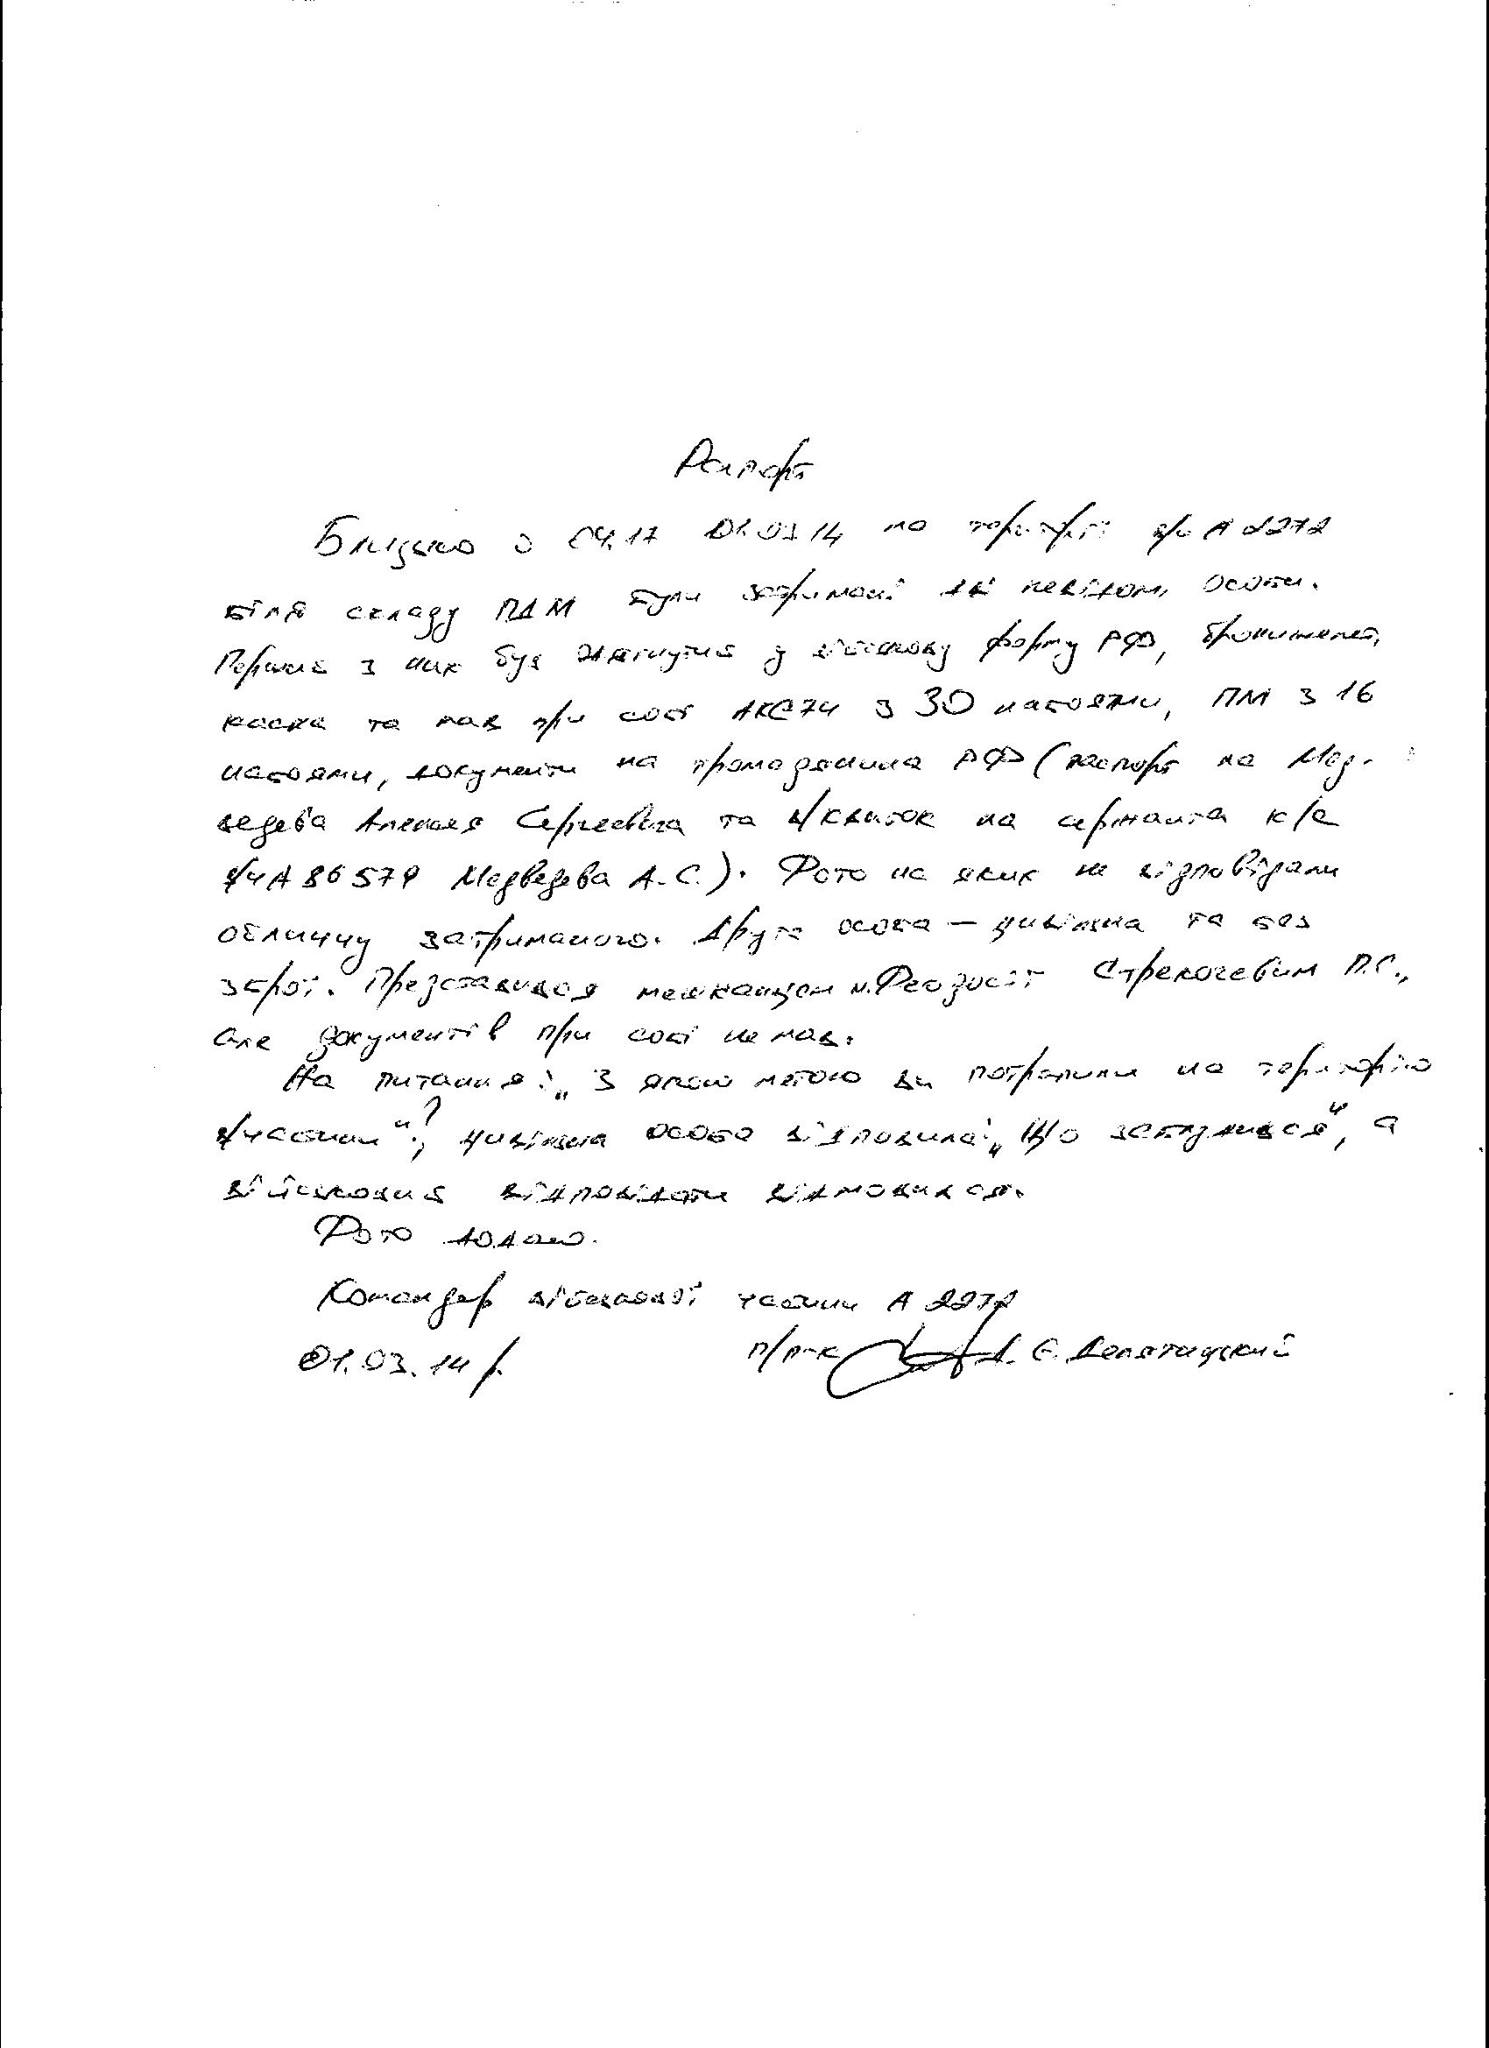 Рапорт
Близько о 04.17 01.03.14 на території в/ч А 2272
біля складу ПММ були затримані дві невідомі особи.
Перший з них був одягнутий у військову форму РФ, бронижилет,
каска та мав при собі АКС74 з 30 набоями, ПМ з 16
набоями, документи на громадянина РФ (паспорт на Мед-
ведева Алексея Сергеевича та в/квиток на сержанта к/с
в/ч А 86579 Медведева А.С.). Фото на яких не відповідали
обличчу затриманого. Друга особа – цивільна та без
зброї. Представився мешканцем м. Феодосії П.С.,
але документів при собі не мав.
На питання: „З якою метою ви потрапили на територію
в/частини"?, цивільна особа відповила: „Що заблудився", а
військовий відповідати відмовився.
Фото додаю.
Командир військової частини А 2272
01.03.14 р. п/п-к Є. Делятицький